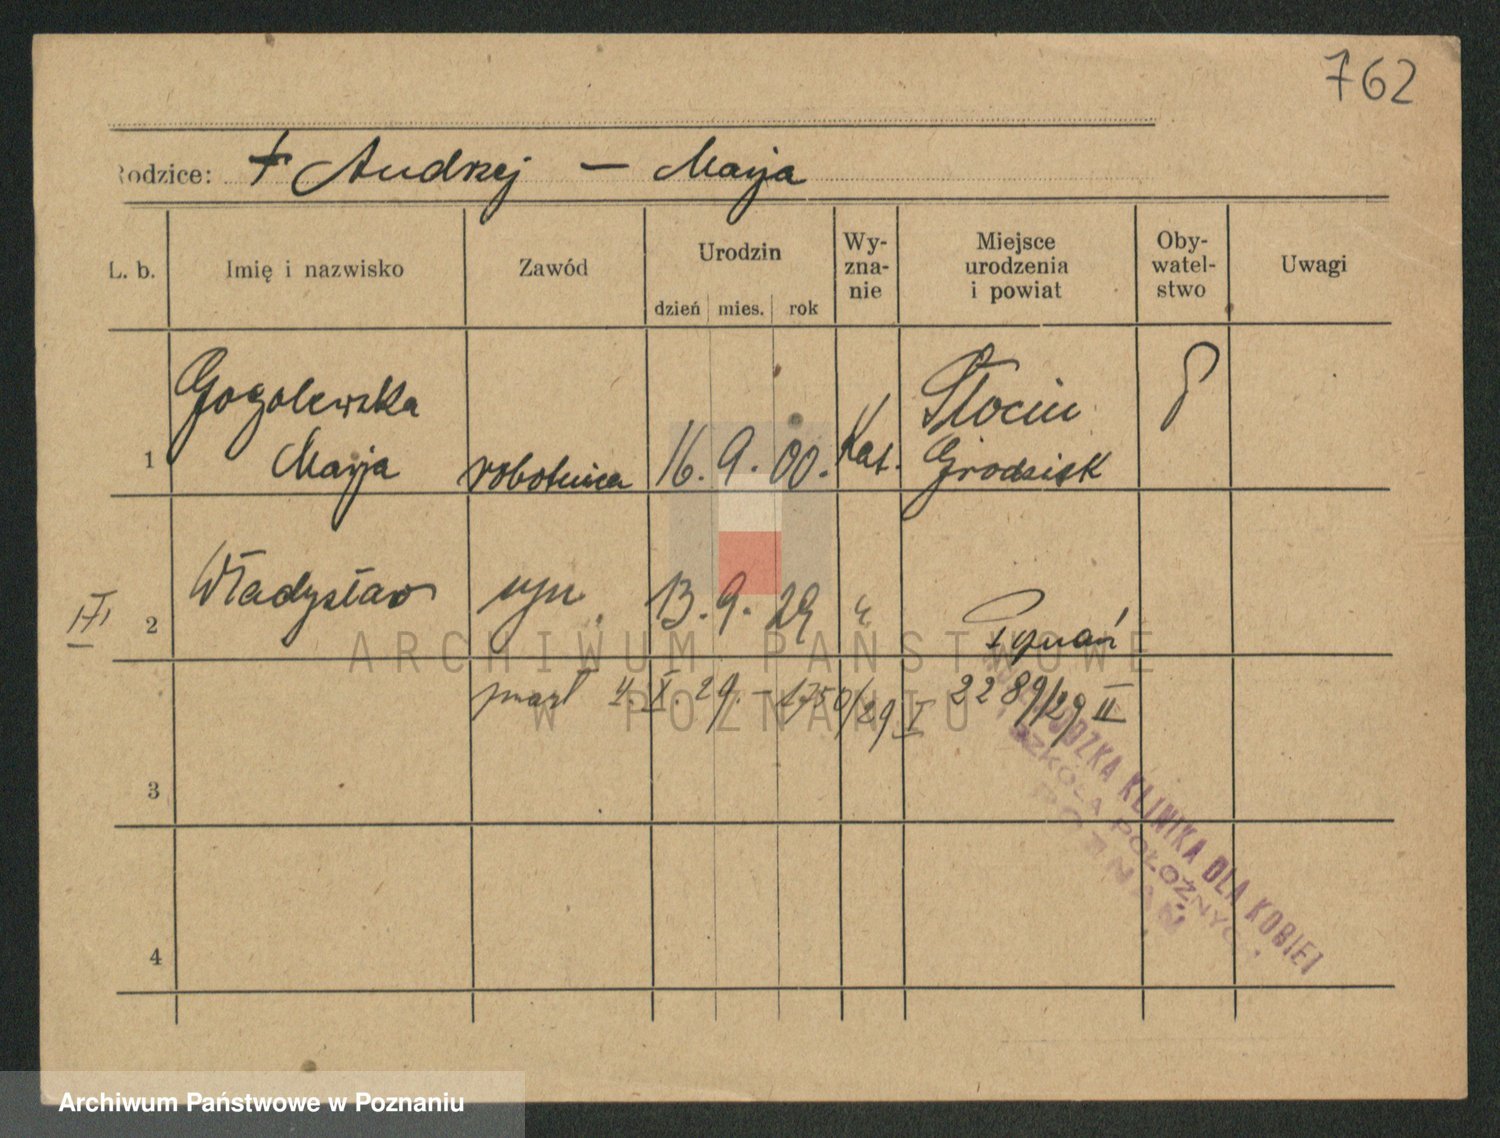 762
Rodzice: † Andrzej — Marja
L. b.
Imię i nazwisko
Zawód
Urodzin
dzień mies. rok
Wy-
zna-
nie
Miejsce
urodzenia
i powiat
Oby-
watel-
stwo
Uwagi
1 Gogolewska
Marja robotnica 16. 9. 00. Kat.
Grodzisk
2 Władysław syn 13. 9. 29 "
Poznań
zmarł 4. X. 29. - 1750/29 I 2289/29 II
3
4
KLINIKA DLA KOBIET
SZKOŁA POŁOŻNYCH
POZNAŃ
ARCHIWUM PAŃSTWOWE
W POZNANIU
Archiwum Państwowe w Poznaniu